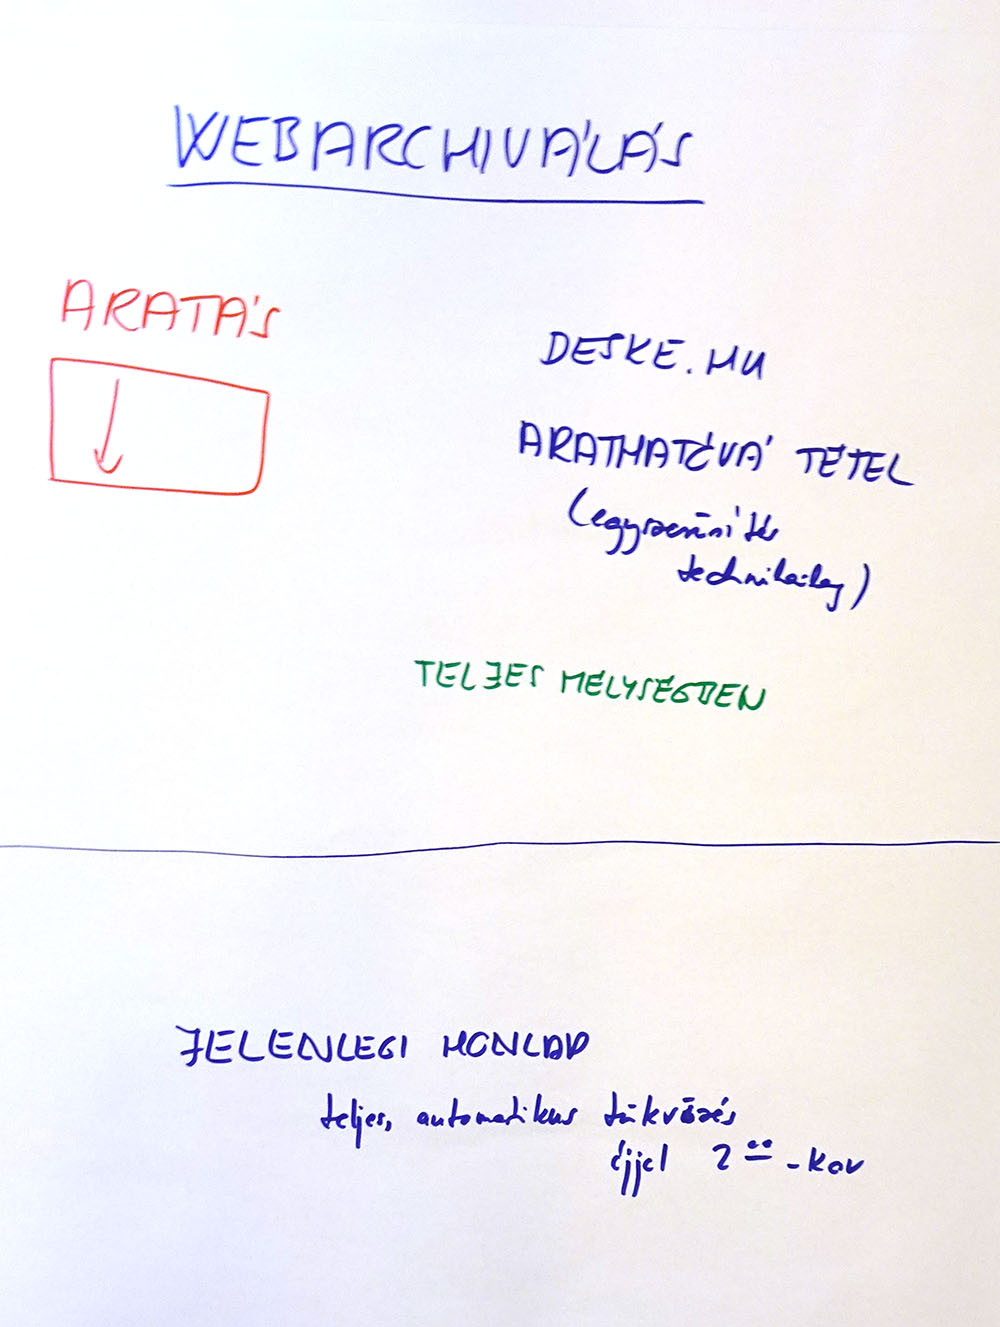 WEBARCHIVÁLÁS
ARATÁS
DESKE.HU
ARATHATÓVÁ TÉTEL
(egyszerűsítés
technikailag)
TELJES MÉLYSÉGBEN
JELENLEGI HONLAP
teljes, automatikus tükrözés
éjjel 2 00-kor